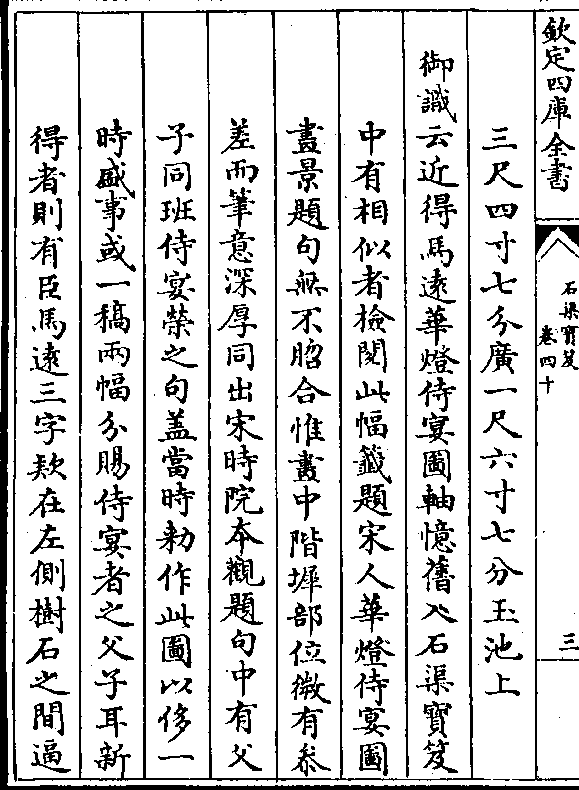 欽定四庫全書
石渠寶笈
卷四十
三
三尺四寸七分廣一尺六寸七分玉池上
御識云近得馬遠華燈侍宴圖軸憶舊入石渠寶笈
中有相似者檢閱此幅籤題宋人華燈侍宴圖
畫景題句無不脗合惟畫中階墀部位微有參
差而筆意深厚同出宋時院本觀題句中有父
子同班侍宴榮之句盖當時勅作此圖以侈一
時盛事或一稿兩幅分賜侍宴者之父子耳新
得者則有臣馬遠三字欵在左側樹石之間逼